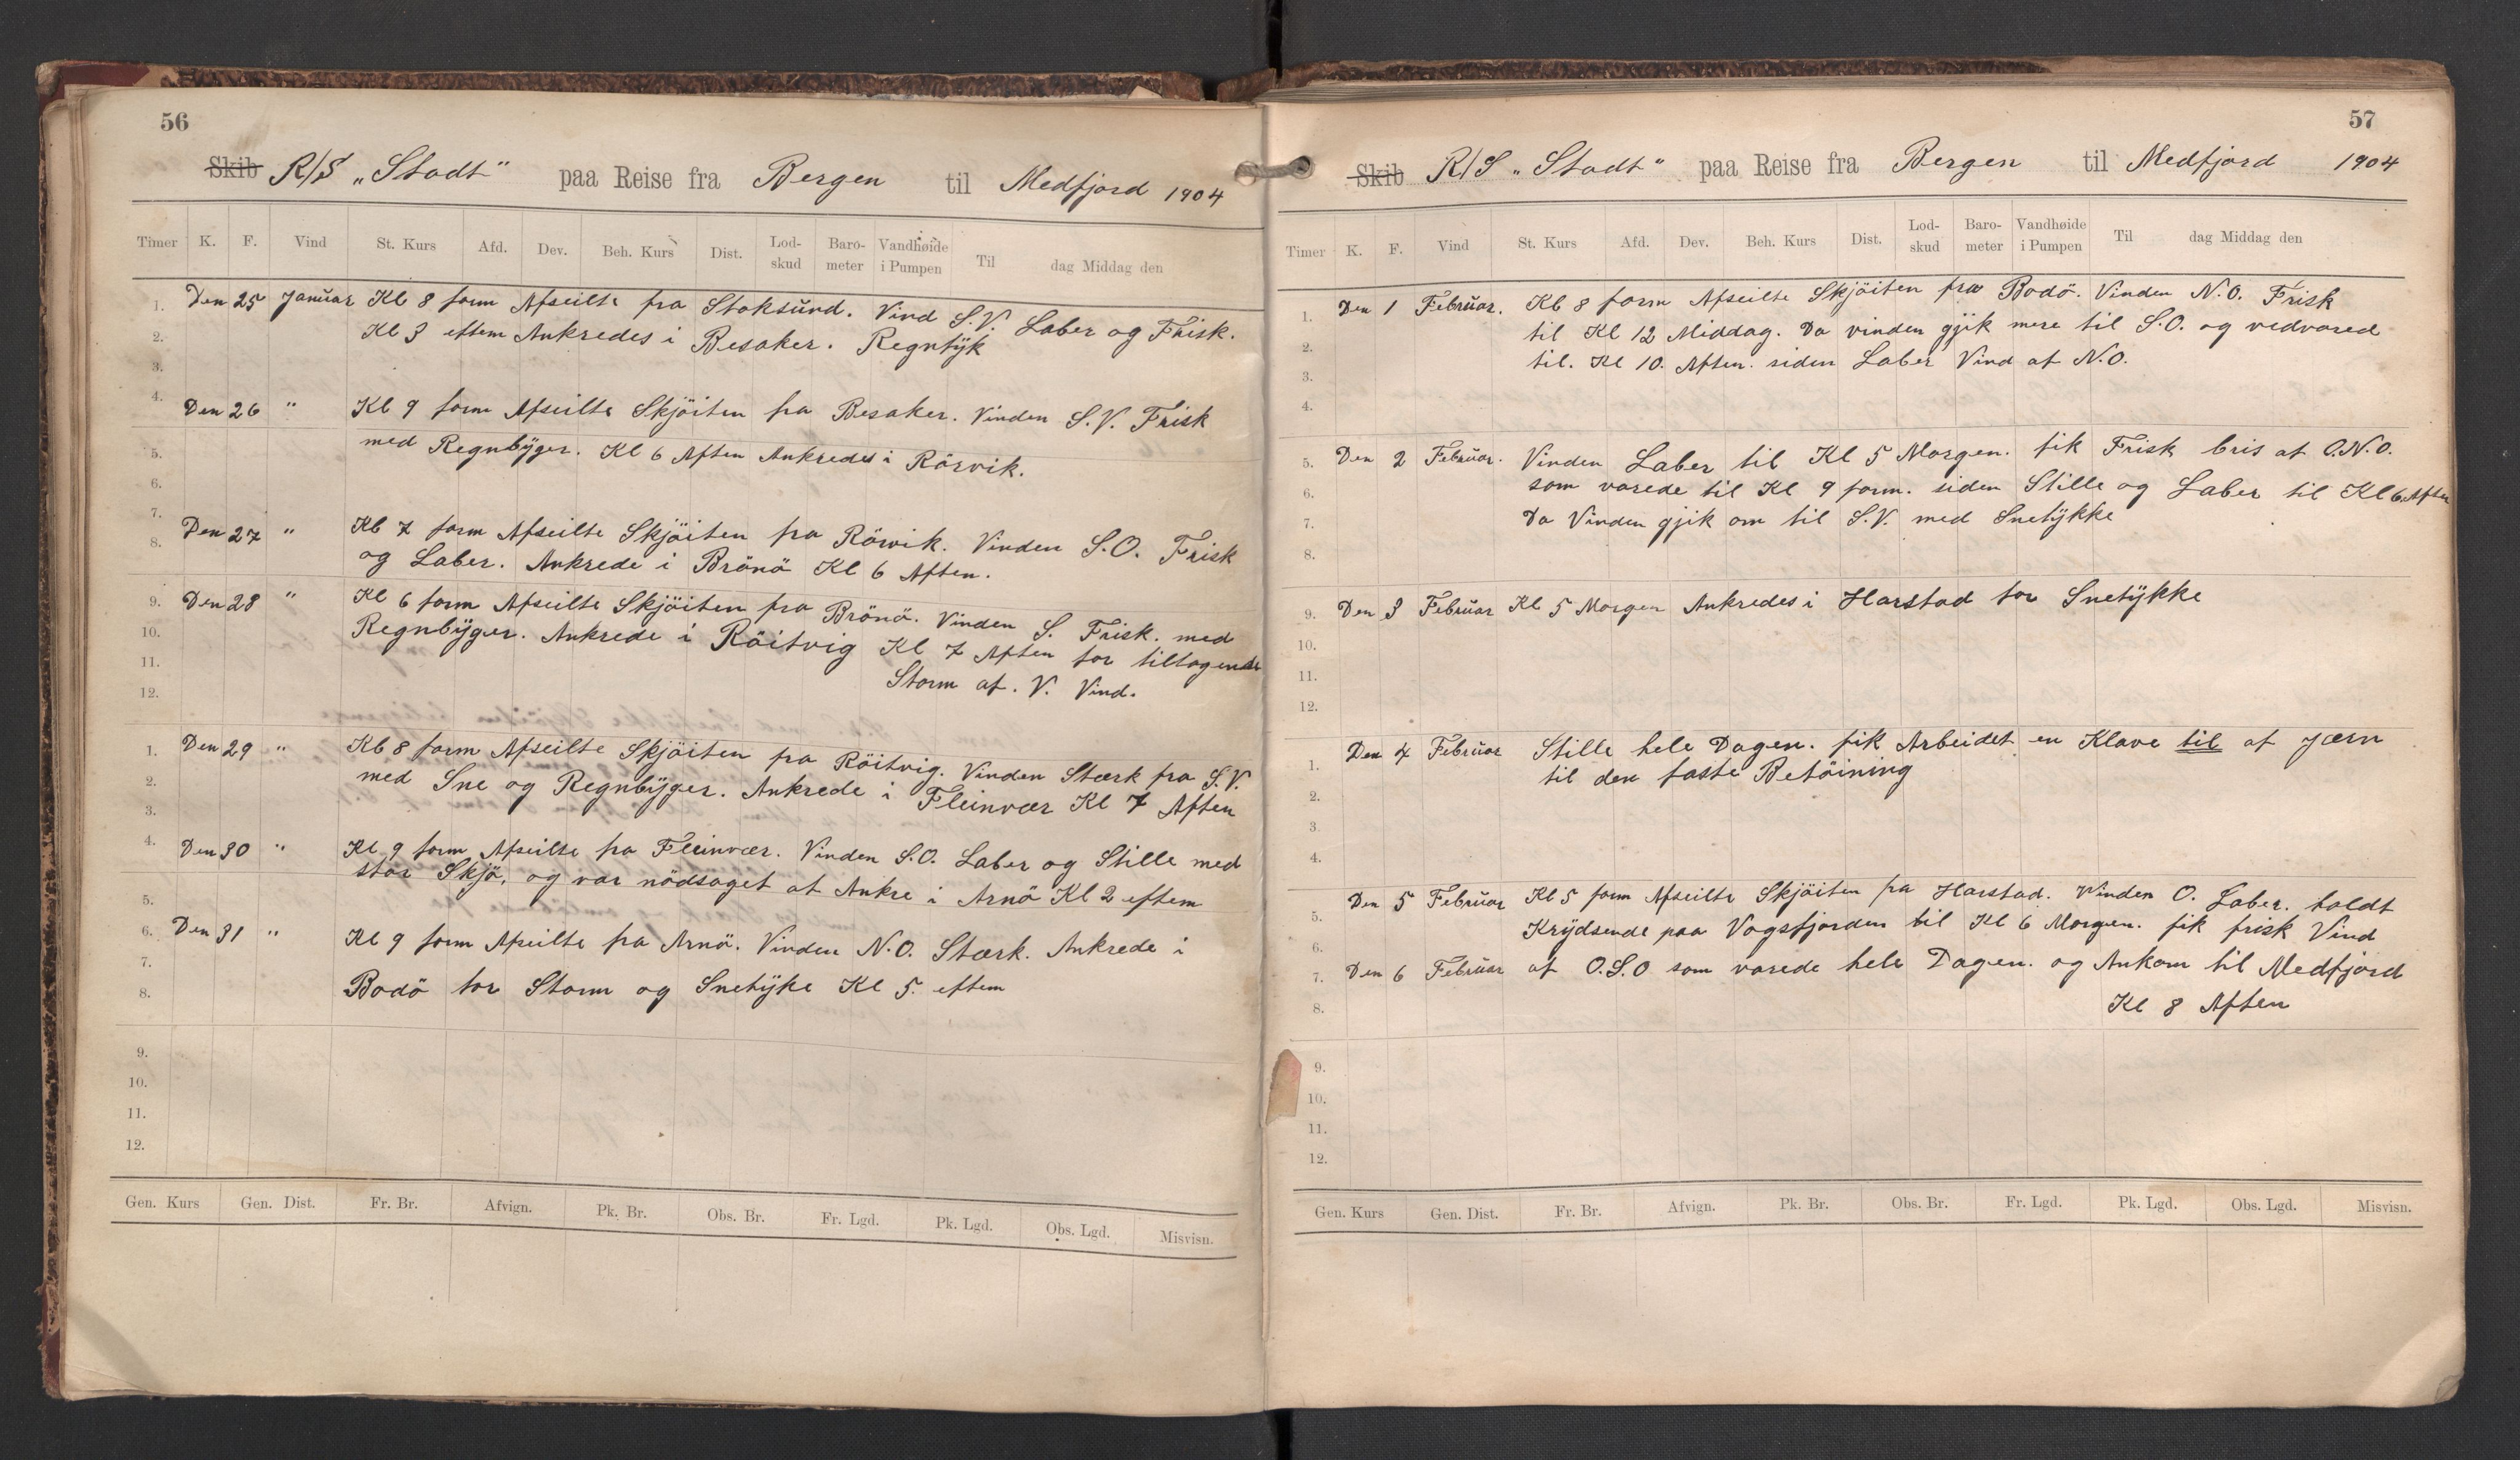 56
Skib R/S „Stadt" paa Reise fra Bergen til Medfjord 1904
Timer K. F. Vind St. Kurs Afd. Dev. Beh. Kurs Dist. Lod-skud Baro-meter Vandhøide i Pumpen Til dag Middag den
1. Den 25 Januar Kl 8 form Afseilte fra Stoksund. Vind S.V. Laber og Frisk.
2. Kl 3 eftem Ankredes i Besaker. Regntÿk
3.
4. Den 26 " Kl 9 form Afseilte Skjöiten fra Besaker. Vinden S.V. Frisk
5. med Regnbÿger. Kl 6 Aften Ankredes i Rörvik.
6.
7.
8. Den 27 " Kl 7 form Afseilte Skjöiten fra Rörvik. Vinden S.O. Frisk
og Laber. Ankrede i Brönö Kl 6 Aften.
9. Den 28 " Kl 6 form Afseilte Skjöiten fra Brönö. Vinden S. Frisk. med
10. Regnbÿger. Ankrede i Röitvig Kl 7 Aften for tiltagende
11. Storm af. V. Vind.
12.
1. Den 29 " Kl 8 form Afseilte Skjöiten fra Röitvig. Vinden Stærk fra S.V.
2. med Sne og Regnbÿger. Ankrede i Fleinvær Kl 7 Aften
3.
4. Den 30 " Kl 9 form Afseilte fra Fleinvær. Vinden S.O. Laber og Stille med
stor Skjö, og var nödsaget at Ankre i Arnö Kl 2 eftem
5.
6. Den 31 " Kl 9 form Afseilte fra Arnö. Vinden N.O. Stærk. Ankrede i
7.
8. Bodö for Storm og Snetÿke Kl 5. eftem
9.
10.
11.
12.
Gen. Kurs Gen. Dist. Fr. Br. Afvign. Pk. Br. Obs. Br. Fr. Lgd. Pk. Lgd. Obs. Lgd. Misvisn.
57
Skib R/S „Stadt" paa Reise fra Bergen til Medfjord 1904
Timer K. F. Vind St. Kurs Afd. Dev. Beh. Kurs Dist. Lod-skud Baro-meter Vandhøide i Pumpen Til dag Middag den
1. Den 1 Februar. Kl 8 form Afseilte Skjöiten fra Bodö. Vinden N.O. Frisk
2. til Kl 12 Middag. Da vinden gjik mere til S.O. og vedvared
3. til. Kl 10. Aften. siden Laber Vind af N.O.
4.
5. Den 2 Februar. Vinden Laber til Kl 5 Morgen. fik Frisk bris af O.N.O.
6. som varede til Kl 9 form. siden Stille og Laber til Kl 6. Aften
7. Da Vinden gjik om til S.V. med Snetÿkke
8.
9. Den 3 Februar Kl 5 Morgen Ankredes i Harstad for Snetÿkke
10.
11.
12.
1. Den 4 Februar Stille hele Dagen. fik Arbeidet en Klave til af Jærn
2. til den faste Betöining
3.
4.
5. Den 5 Februar Kl 5 form Afseilte Skjöiten fra Harstad. Vinden O. Laber. holdt
6. Krÿdsende paa Vagsfjorden til Kl 6 Morgen. fik frisk Vind
7. Den 6 Februar af O.S.O som varede hele Dagen. og Ankom til Medfjord
8. Kl 8 Aften
9.
10.
11.
12.
Gen. Kurs Gen. Dist. Fr. Br. Afvign. Pk. Br. Obs. Br. Fr. Lgd. Pk. Lgd. Obs. Lgd. Misvisn.